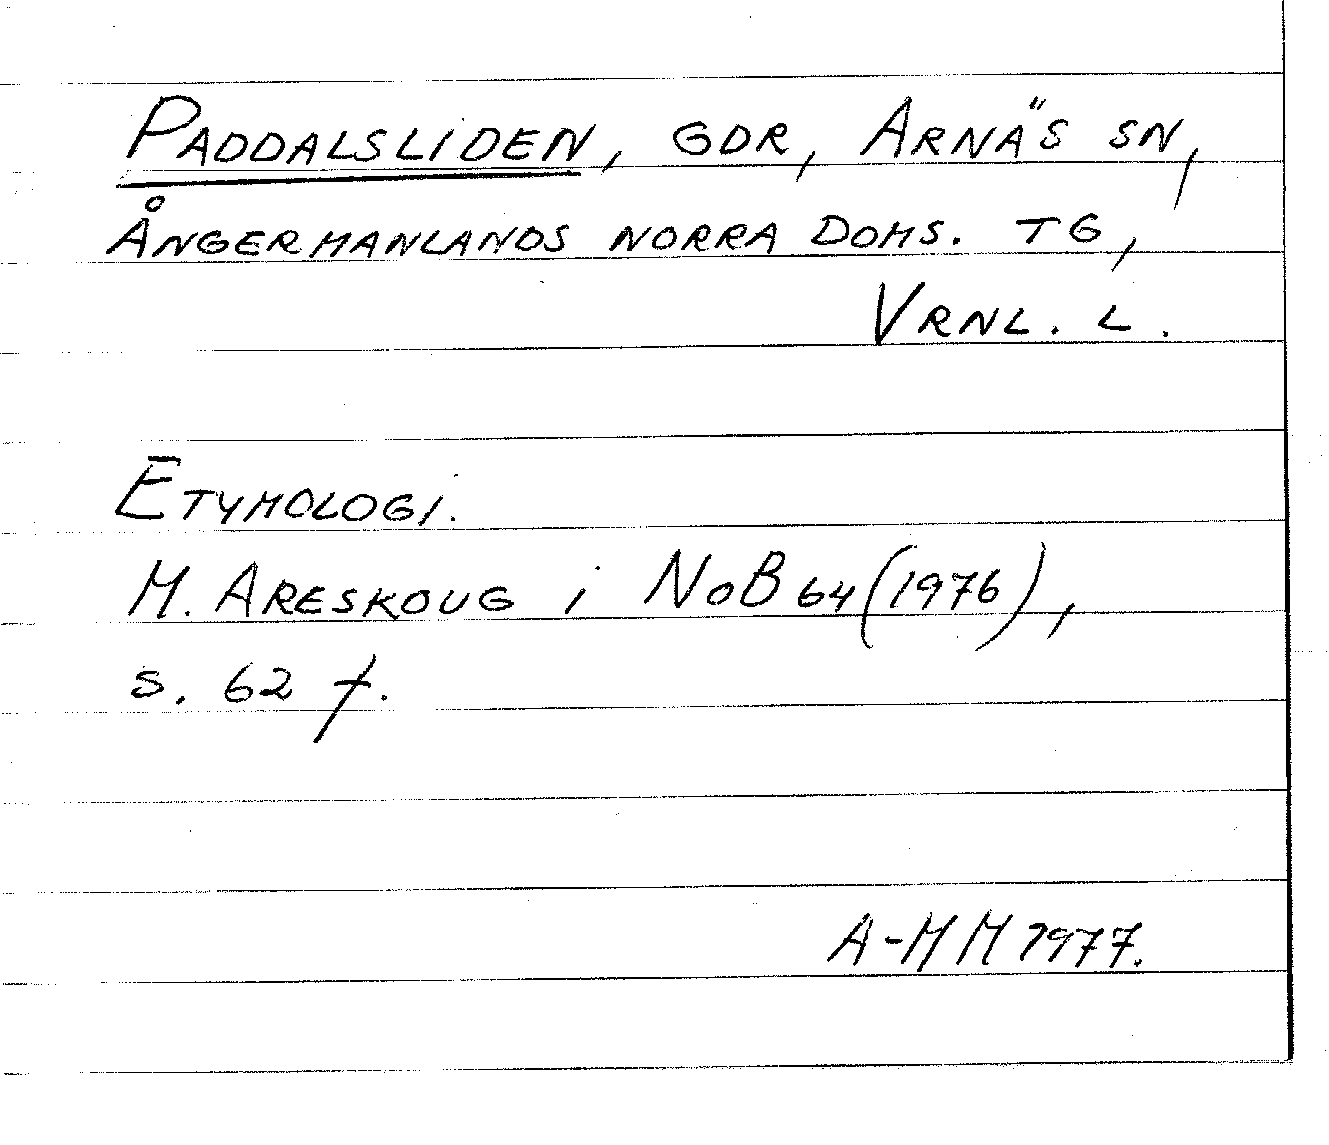 PADDALSLIDEN, GDR, ARNÄS SN,
ÅNGERMANLANDS NORRA DOMS. TG,
VRNL. L.
ETYMOLOGI.
M. ARESKOUG i NoB 64 (1976),
s. 62 f.
A-MM 1977.